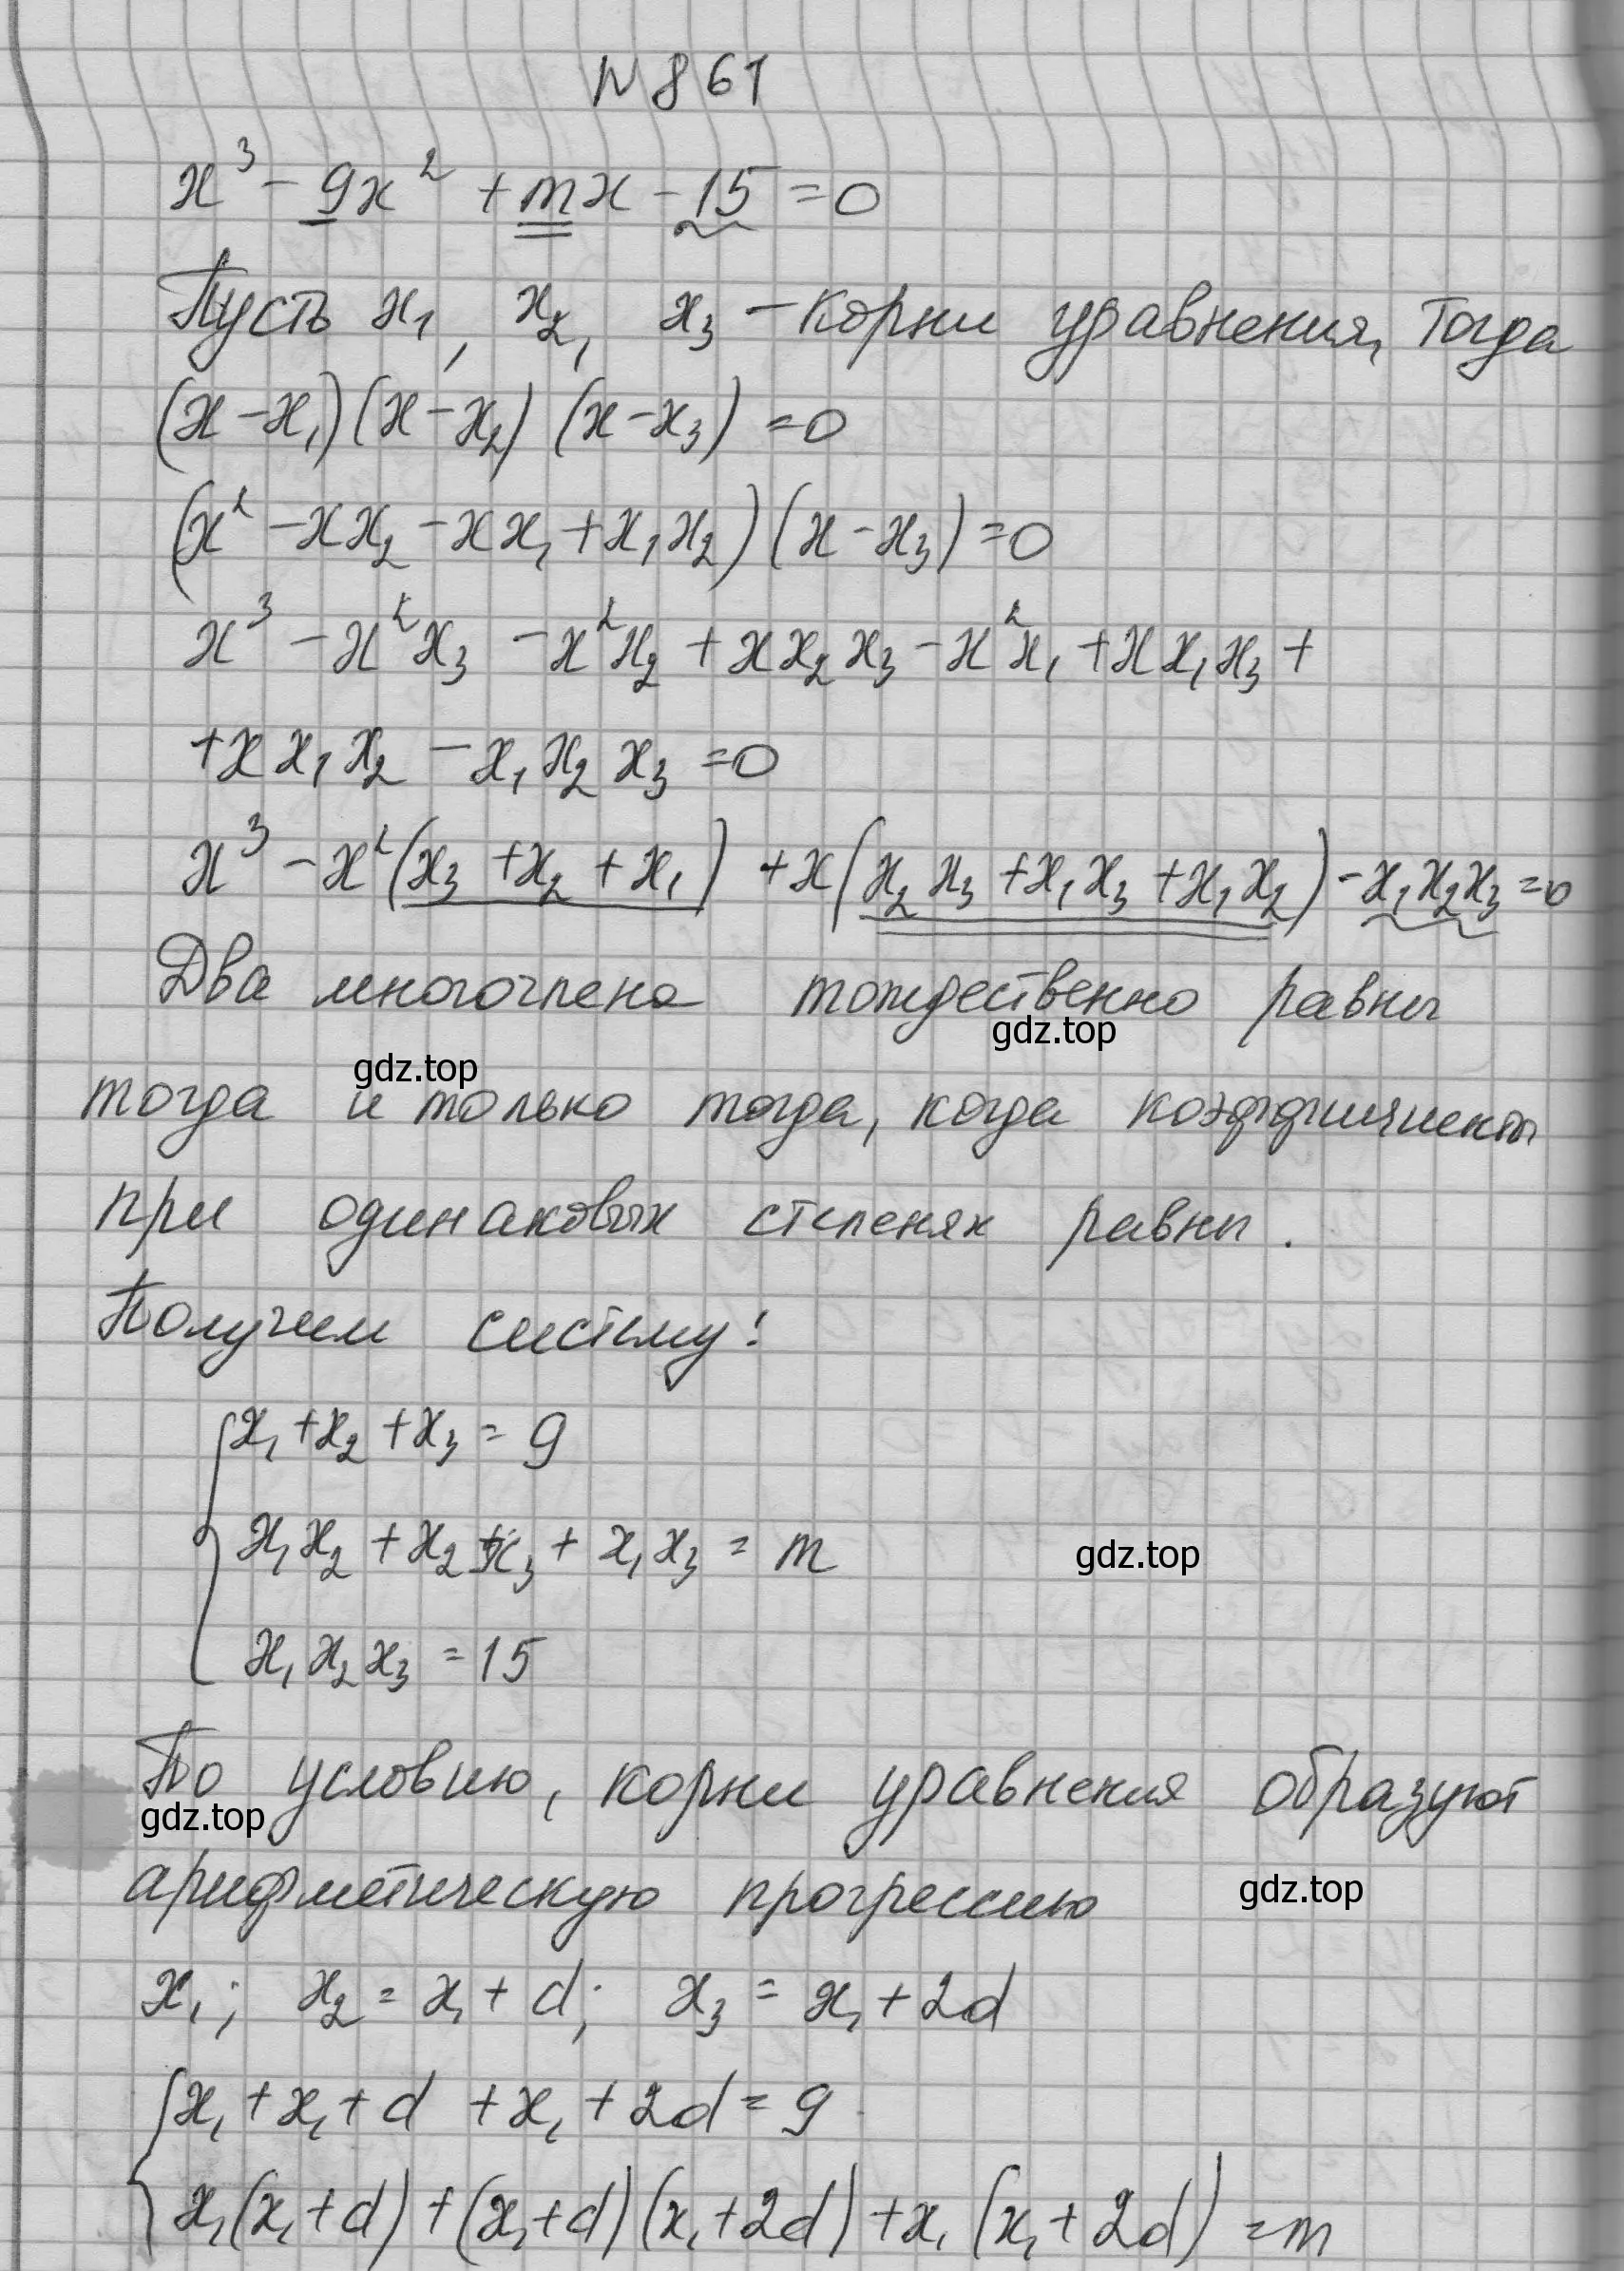 N 861
x³ - 9x² + mx - 15 = 0
Пусть x₁, x₂, x₃ - корни уравнения, Тогда
(x - x₁)(x - x₂)(x - x₃) = 0
(x² - xx₂ - xx₁ + x₁x₂)(x - x₃) = 0
x³ - x²x₃ - x²x₂ + xx₂x₃ - x²x₁ + xx₁x₃ +
+ xx₁x₂ - x₁x₂x₃ = 0
x³ - x²(x₃ + x₂ + x₁) + x(x₂x₃ + x₁x₃ + x₁x₂) - x₁x₂x₃ = 0
Два многочлена тождественно равны
gdz.top
gdz.top
тогда и только тогда, когда коэффициенты
при одинаковых степенях равны.
Получим систему:
x₁ + x₂ + x₃ = 9
x₁x₂ + x₂x₃ + x₁x₃ = m
gdz.top
x₁x₂x₃ = 15
По условию, корни уравнения образуют
gdz.top
арифметическую прогрессию
gdz.top
x₁; x₂ = x₁ + d; x₃ = x₁ + 2d
x₁ + x₁ + d + x₁ + 2d = 9
x₁(x₁ + d) + (x₁ + d)(x₁ + 2d) + x₁(x₁ + 2d) = m